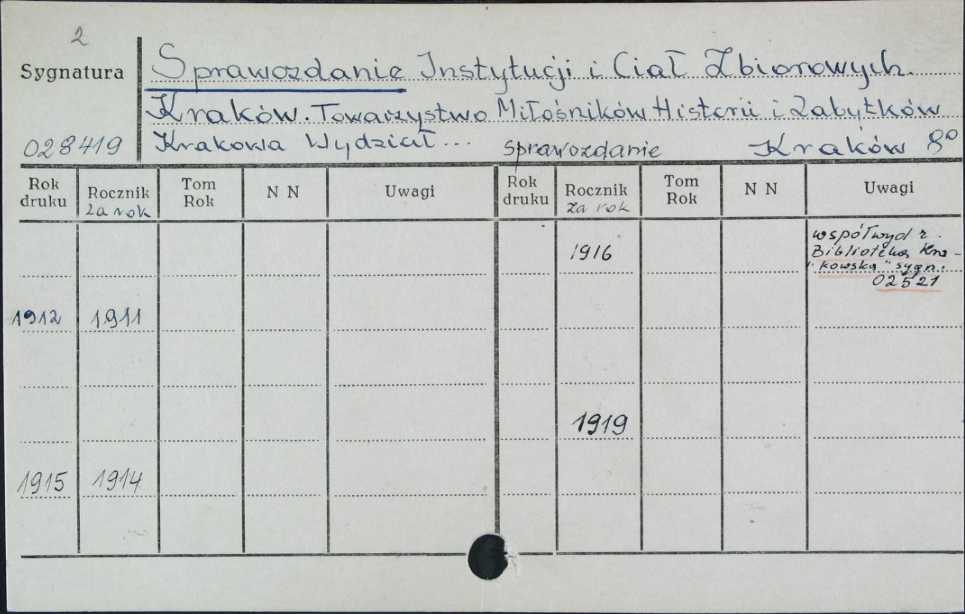 2
Sygnatura
Sprawozdanie Instytucji i Ciał Zbiorowych.
Kraków. Towarzystwo Miłośników Historii i Zabytków
028419 Krakowa Wydział... sprawozdanie Kraków 8°
Rok druku Rocznik za rok Tom Rok N N Uwagi Rok druku Rocznik za rok Tom Rok N N Uwagi
1916 współwyd z.
Biblioteka Kra-
kowska" sygn.:
02521
1912 1911
1919
1915 1914